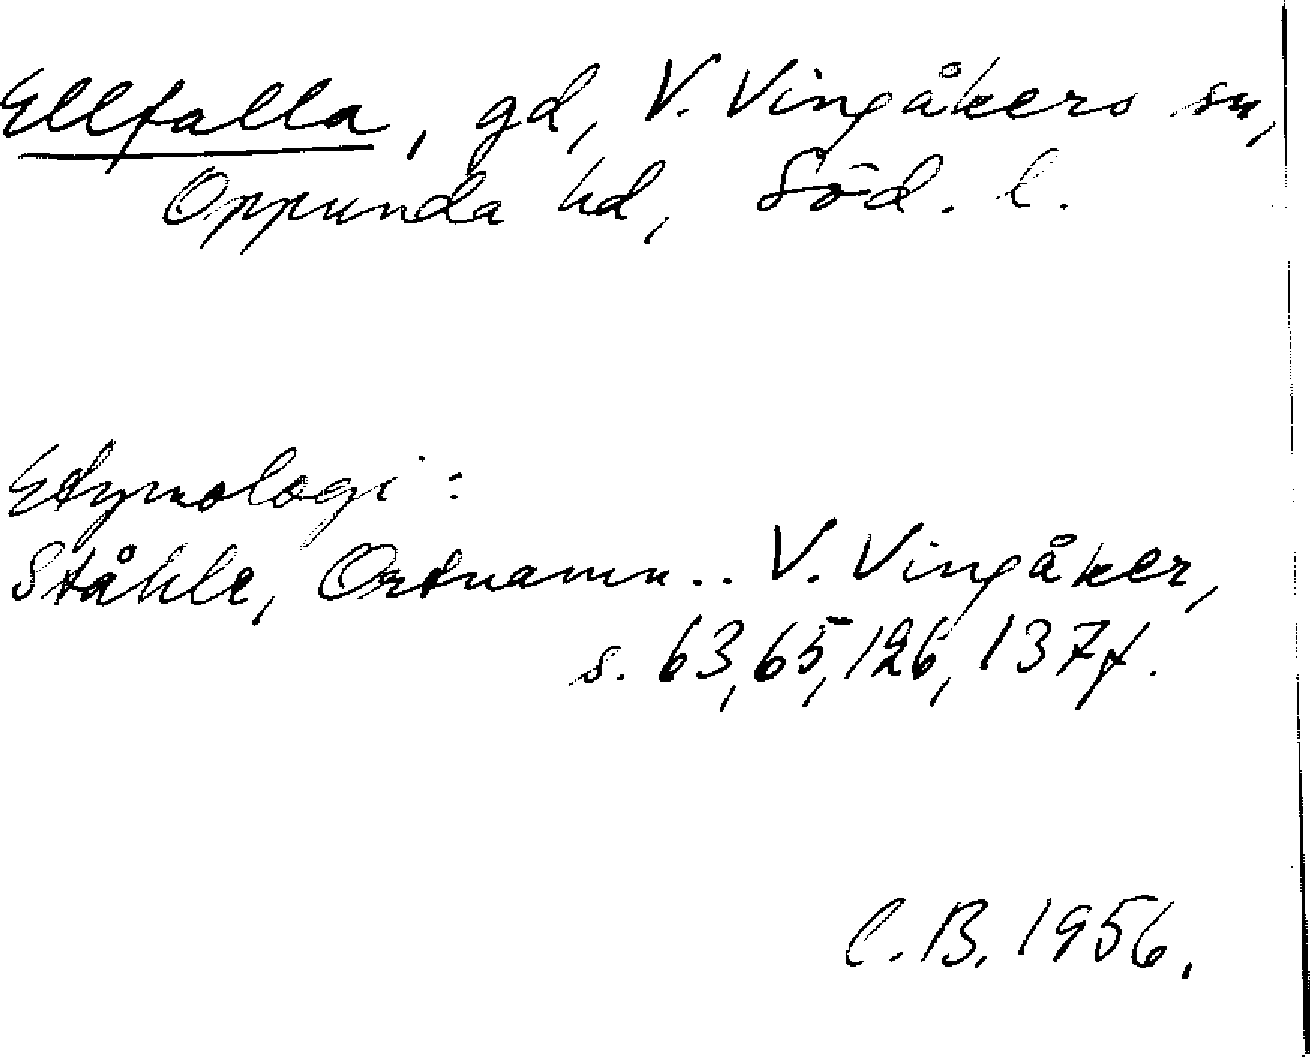 Ellfalla, gd, V. Vingåkers sn,
Oppunda hd, Söd. l.
Etymologi:
Ståhle, Ortnamn.. V. Vingåker,
s. 63, 65, 126, 137f.
C.B. 1956.